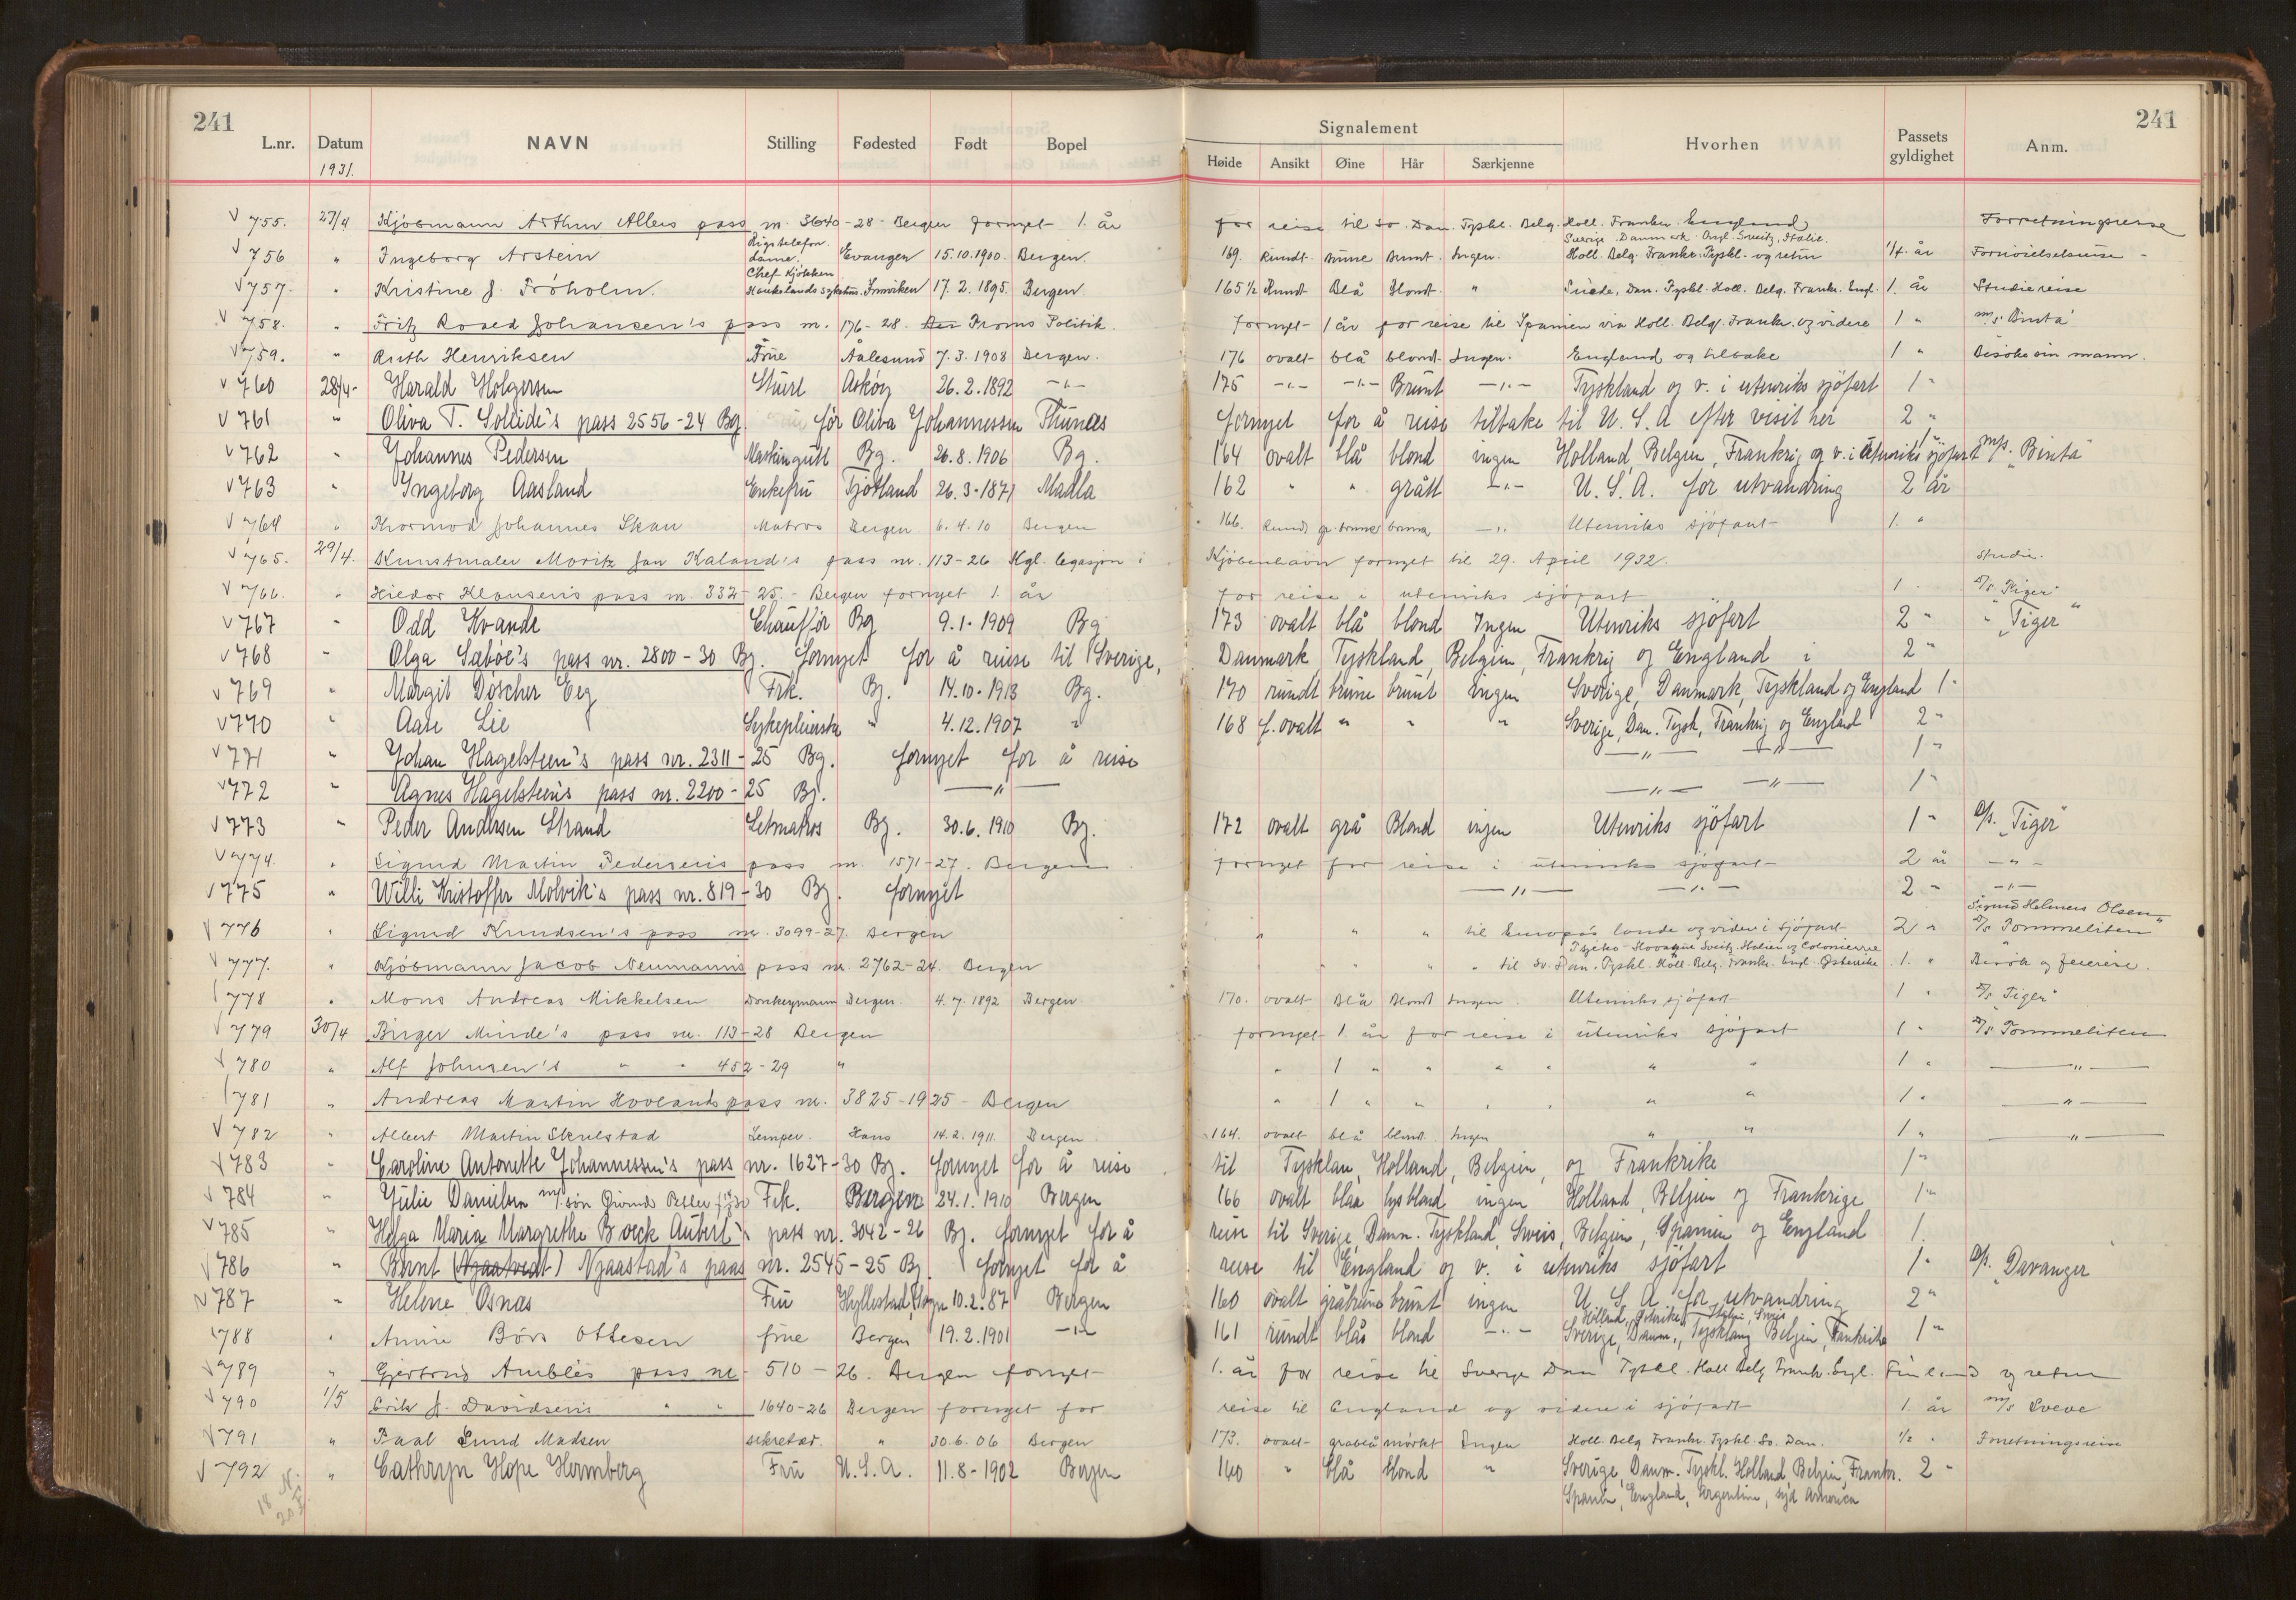 241 241
L.nr. Datum NAVN Stilling Fødested Født Bopel Signalement Hvorhen Passets gyldighet Anm.
1931. Høide Ansikt Øine Hår Særkjenne
755. 27/4 Kjöbmann Arthur Allers pass nr. 3640-28- Bergen fornyet 1. år for reise til Sv. Dan. Tyskl. Belg. Holl. Frankr. England Forretningsreise
756 " Ingeborg Arstein Rigstelefon. dame. Evangen 15.10.1900. Bergen. 169. Rundt. brune brunt. Ingen. Sverige Danmark Engl. Sveitz, Italie. Holl. Belg. Frankr. Tyskl. og retur 1/4. år
757. " Kristine J. Fröholm. Chef Kjökken Haukelands sykehus. 17.2.1895. Bergen 165 1/2 Rundt Blå Blondt. " Dan. Tyskl. Holl. Belg. Frankr. Engl. 1. år Studiereise
758. " Fritz Roald Johansen's pass nr. 176-28. Troms Politik. fornyet 1 år for reise til Spanien via Holl. Belg. Frankr. og videre 1 " m/s "Binta"
759. " Ruth Henriksen Frue Ålesund 7.3.1908 Bergen. 176 ovalt blå blond Ingen. England og tilbake 1 " Besöke sin mann.
760 28/4- Harald Holgersen Stuert Asköy 26.2.1892 -"- 175 -"- -"- Brunt -"- Tyskland og v. i utenriks sjöfart 1 "
761 " Oliva T. Sollide's pass 2556-24 Bg. för Oliva Johannessen Thunæs fornyet for å reise tilbake til U.S.A efter visit her 2 "
762 " Johannes Pedersen Maskingutt Bg. 26.8.1906 Bg. 164 ovalt blå blond ingen Holland, Belgien, Frankrig og v. i utenriks sjöfart 1 " m/s. "Binta"
763 " Ingeborg Aasland Enkefru Tjötland 26.3-1871 Madla 162 " " grått -"- U.S.A. for utvandring 2 år
764 " Thormod Johannes Skau Matros Bergen. 6.4.10 Bergen 166. Rundt gr. brune brune -"- Utenriks sjöfart 1. "
765. 29/4. Kunstmaler Moritz Jan Kaland's pass nr. 113-26 Kgl. legasjon i Kjöbenhavn fornyet til 29. April 1932. Studie.
766. " Klausens pass nr. 332-25.- Bergen fornyet 1. år for reise i utenriks sjöfart 1. D/s "Tiger"
767 " Odd Kvande Chauffør Bg 9.1.1909 Bg 173 ovalt blå blond Ingen Utenriks sjöfart 2 " " "Tiger"
768 " Olga Sæböe's pass nr. 2800-30 Bg. fornyet for å reise til Sverige, Danmark, Tyskland, Belgien, Frankrig og England i 2 "
769 " Margit Döscher Eeg Frk. Bg. 14.10.1913 Bg. 170 rundt brune brunt ingen Sverige, Danmark, Tyskland og England 1 "
770 " Aase Lie Sykepleierske " 4.12.1907 " 168 f. ovalt " " " Sverige, Dan. Tysk, Frankrig og England 2 "
771 " Johan Hagelsteen's pass nr. 2311-25 Bg. fornyet for å reise -"- -"- 1 "
772 " Agnes Hagelsteen's pass nr. 2200-25 Bg. -"- -"- -"- 1 "
773 " Peder Andersen Strand Letmatros Bg. 30.6.1910 Bg. 172 ovalt grå Blond ingen Utenriks sjöfart 1 " D/s. "Tiger"
774. " Sigurd Martin Pedersens pass nr. 1571-27. Bergen fornyet for reise i utenriks sjöfart 2 år -"-
775 " Willi Kristoffer Molvik's pass nr. 819-30 Bg. fornyet -"- -"- 2 " -"-
776 " Sigurd Knudsen's pass nr. 3099-27. Bergen " " " til Europas lande og videre i sjöfart 2 " Sigurd Helmers Olsen D/s "Tommeliten"
777. " Kjöbmann Jacob Neumanns pass nr. 2762-24. Bergen " " " " til Sv. Dan. Tyskl. Holl. Belg. Frankr. Engl. Østerrike 1. " Besök og feriereise.
778 " Mons Andreas Mikkelsen Donkeymann Bergen. 4.7.1892 Bergen. 170. ovalt Blå Blond Ingen. Utenriks sjöfart 1 " D/s "Tiger"
779 30/4 Birger Minde's pass nr. 113-28 Bergen fornyet 1. år for reise i utenriks sjöfart 1 " D/s "Tommeliten
780 " Alf Johnsen's " " 452-29 " " 1 " " " " " " 1 " -"-
781 " Andreas Martin Hovlands pass nr. 3825-1925- Bergen " 1 " " " " " " 1 " -"-
782 " Albert Martin Skrelstad Lemper. Haus 14.2.1911. Bergen. 164. ovalt blå blond Ingen " " 1 " -"-
783 " Caroline Antonette Johannessen's pass nr. 1627-30 Bg. fornyet for å reise til Tysklan, Holland, Belgien, og Frankrike 1 "
784 " Julie Danielsen m/ søn Frk. Bergen 24.1.1910 Bergen 166 ovalt blaa lysblond ingen Holland, Belgien og Frankrige 1 "
785 " Helga Maria Margrethe Boeck Aubert's pass nr. 3042-26 Bg. fornyet for å reise til Sverige, Danm. Tyskland, Sveis, Belgien, Spanien og England 1.
786 " Bernt (Njaatvedt) Njaastad's pass nr. 2545-25 Bg. fornyet for å reise til England og v. i utenriks sjöfart 1 " D/s. "Davanger"
787 " Helene Osnæs Fru Hyllestad, Sogn 10.2.87 Bergen 160 ovalt gråbrune brunt ingen U.S.A. for utvandring 2 "
788 " Annie Börs Ottesen frue Bergen 19.2.1901 -"- 161 rundt blå blond -"- Holland, Østerrike, Italien, Sveis Sverige, Danm., Tyskland Belgien, Frankrike 1 "
789 " Gjertrud Amblés pass nr. 510-26. Bergen fornyet 1. år for reise til Sverige Dan Tyskl. Holl Belg Frank. Engl. Finland og retur
790 1/5 Erik J. Davidsens " " 1640-26 Bergen fornyet for reise til England og videre i sjöfart 1. år m/s Sveve
791 " Paal Lund Madsen sekretær. " 30.6.06 Bergen 173. ovalt gråblå mörkt Ingen Holl. Belg. Frankr. Tyskl. Sv. Dan. 1/2 " Forretningsreise
792 " Cathryn Hope Hornberg Fru U.S.A. 11.8-1902 Bergen 160 " blå blond " Sverige, Danm. Tyskl. Holland Belgien, Frankr. 2 "
Spanien, England, Argentina, syd America